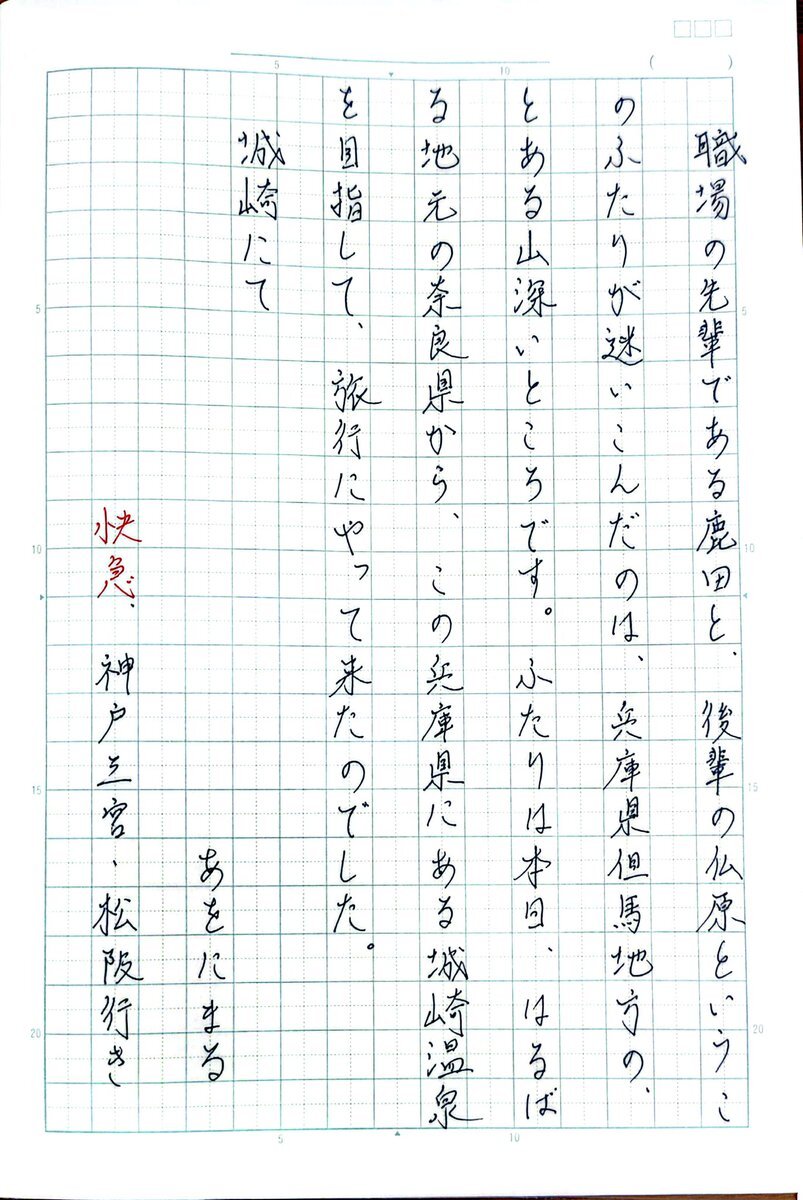 職場の先輩である鹿田と、後輩の仏原というこ
のふたりが迷いこんだのは、兵庫県但馬地方の、
とある山深いところです。ふたりは本日、はるば
る地元の奈良県から、この兵庫県にある城崎温泉
を目指して、旅行にやって来たのでした。
城崎にて
あをにまる
快急、神戸三宮、松阪行き